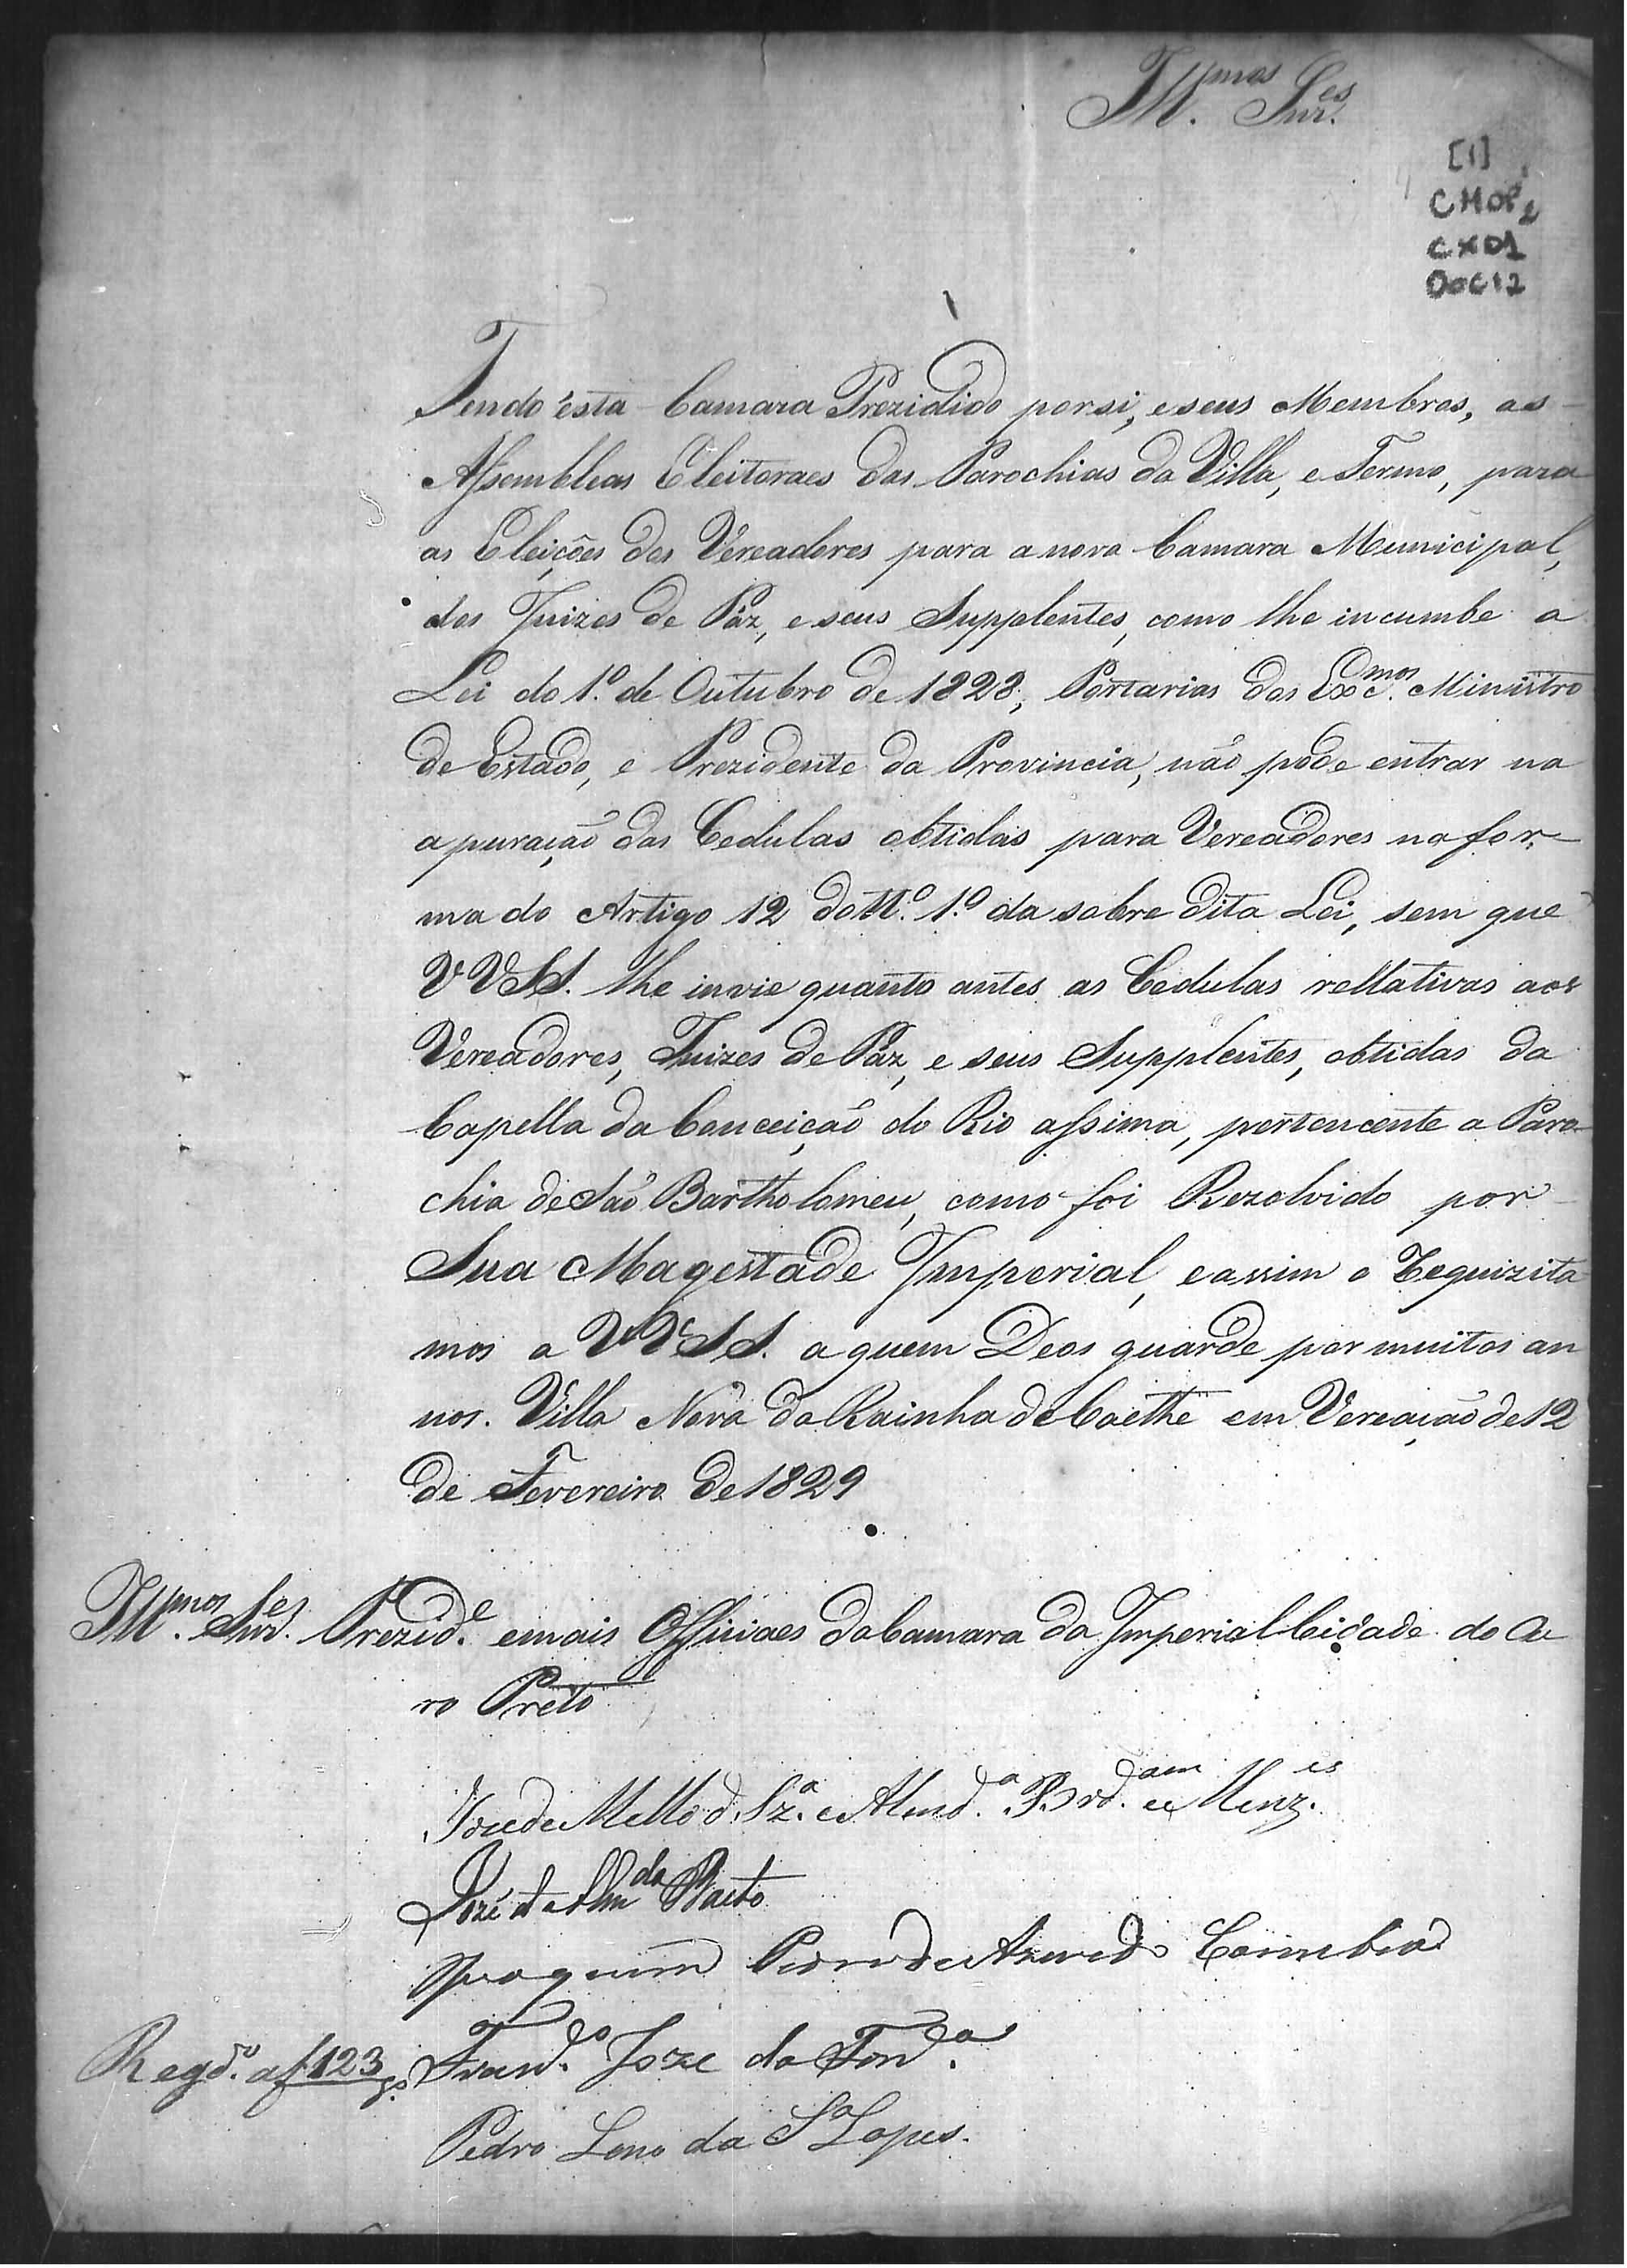 Ill.mos Snr.es
[1]
CMOP2
CX01
Doc12
Tendo ésta Camara Prezidido por si, e seus Membros, as
Assembleas Eleitoraes das Parochias da Villa, e Termo, para
as Eleições dos Vereadores para a nova Camara Municipal,
dos Juizes de Páz, e seus Supplentes, como lhe incumbe a
Lei do 1.º de Outubro de 1828, Portarias dos Exc.mos Ministro
de Estado, e Prezidente da Provincia, não pode entrar na
apuração das Cedulas obtidas para Vereadores na for-
ma do Artigo 12 do tt.º 1.º da sobre dita Lei, sem que
VVSS. lhe invie quanto antes as Cedulas rellativas aos
Vereadores, Juizes de Páz, e seus Supplentes, obtidas da
Capella da Conceição do Rio assima, pertencente a Paro-
chia de São Bartholomeu, como foi Rezolvido por
Sua Magestade Imperial, e assim o Requizita
mos a VVSS. a quem Deos guarde por muitos an
nos. Villa Nova da Rainha de Caethe em Vereação de 12
de Fevereiro de 1829
Ill.mos Snr.es Prezid.e e mais Officiaes da Camara da Imperial Cidade do Ou
ro Preto
Joze de Mello d. Sz.a e Almd.a Brd.am e Menz.es
Jozé de Alm.da Barto
Joaquim Pedro de Azevedo Coimbra
Regd.º a f 123
Fran.do Joze da Fon.ca
Pedro Lino da S.a Lopes.